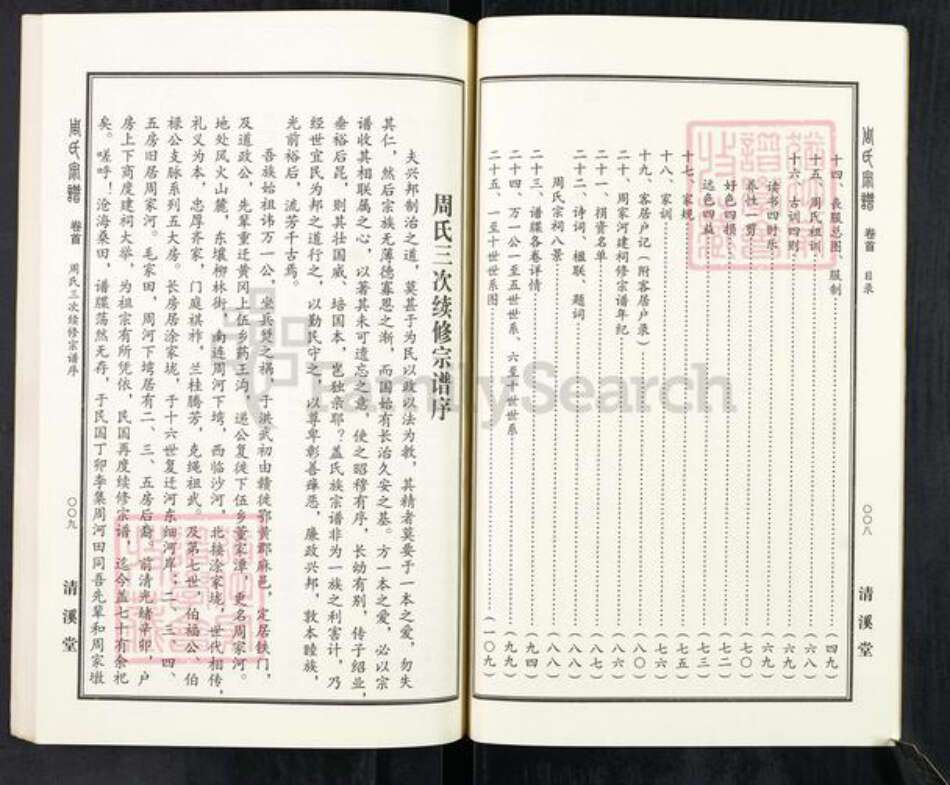 周氏宗谱 卷首 目录 〇〇八 清溪堂
十四、丧服总图、服制（四九）
十五、周氏祖训（六八）
十六、古训四则（六九）
读书四时乐（六九）
养性一剪（七〇）
好色四损（七二）
远色四益（七三）
十七、家规（七五）
十八、家训（七六）
十九、客居户记（附客居户录）（八〇）
二十、周家河建祠修宗谱年纪（八六）
二十一、捐资名单（八七）
二十二、诗词、楹联、题词（八八）
周氏宗祠八景（八八）
二十三、谱牒各卷详情（九四）
二十四、万一公一至五世世系、六至十世世系（九九）
二十五、一至十世世系图（一〇九）
周氏三次续修宗谱序
夫兴邦制治之道，莫甚于为民以政以法为教，其精者莫要于一本之爱，勿失
其仁，然后宗族无薄德寡恩之渐，而国始有长治久安之基。方一本之爱，必以宗
谱收其相联属之心，以著其未可遗忘之意，使之昭穆有序，长幼有别，传子绍业，
垂裕后昆，则其壮国威、培国本，岂独亲耶？盖氏族宗谱非为一族之利害计，乃
经世宜民为邦之道行之，以勤民守之，以尊卑彰善瘅恶，廉政兴邦，敦本睦族，
光前裕后，流芳千古焉。
吾族始祖讳万一公，坐兵燹之祸，于洪武初由赣徙鄂黄郡麻邑，定居铁门，
及道政公，先辈重迁黄冈上伍乡药王沟，递公复徙下伍乡董家潭，更名周家河。
地处凤火山麓，东壤柳林街，南连周河下塆，西临沙河，北接涂家垅，世代相传，
礼义为本，忠厚齐家，门庭祺祚，兰桂腾芳，克绳祖武。及第七世，伯福公、伯
禄公支脉系列五大房。长房居涂家垅，于十六世复迁河东细河岸，二、三、四、
五房旧居周家河。毛家田，周河下塆居有二、三、五房后裔。前清光绪辛卯，户
房上下商度建祠大举，为祖宗有所凭依，民国再度续修宗谱，迄今盖七十有余祀
矣。嗟呼！沧海桑田，谱牒荡然无存，于民国丁卯季集周河田同吾先辈和周家墩
周氏宗谱 卷首 周氏三次续修宗谱序 〇〇九 清溪堂
FamilySearch